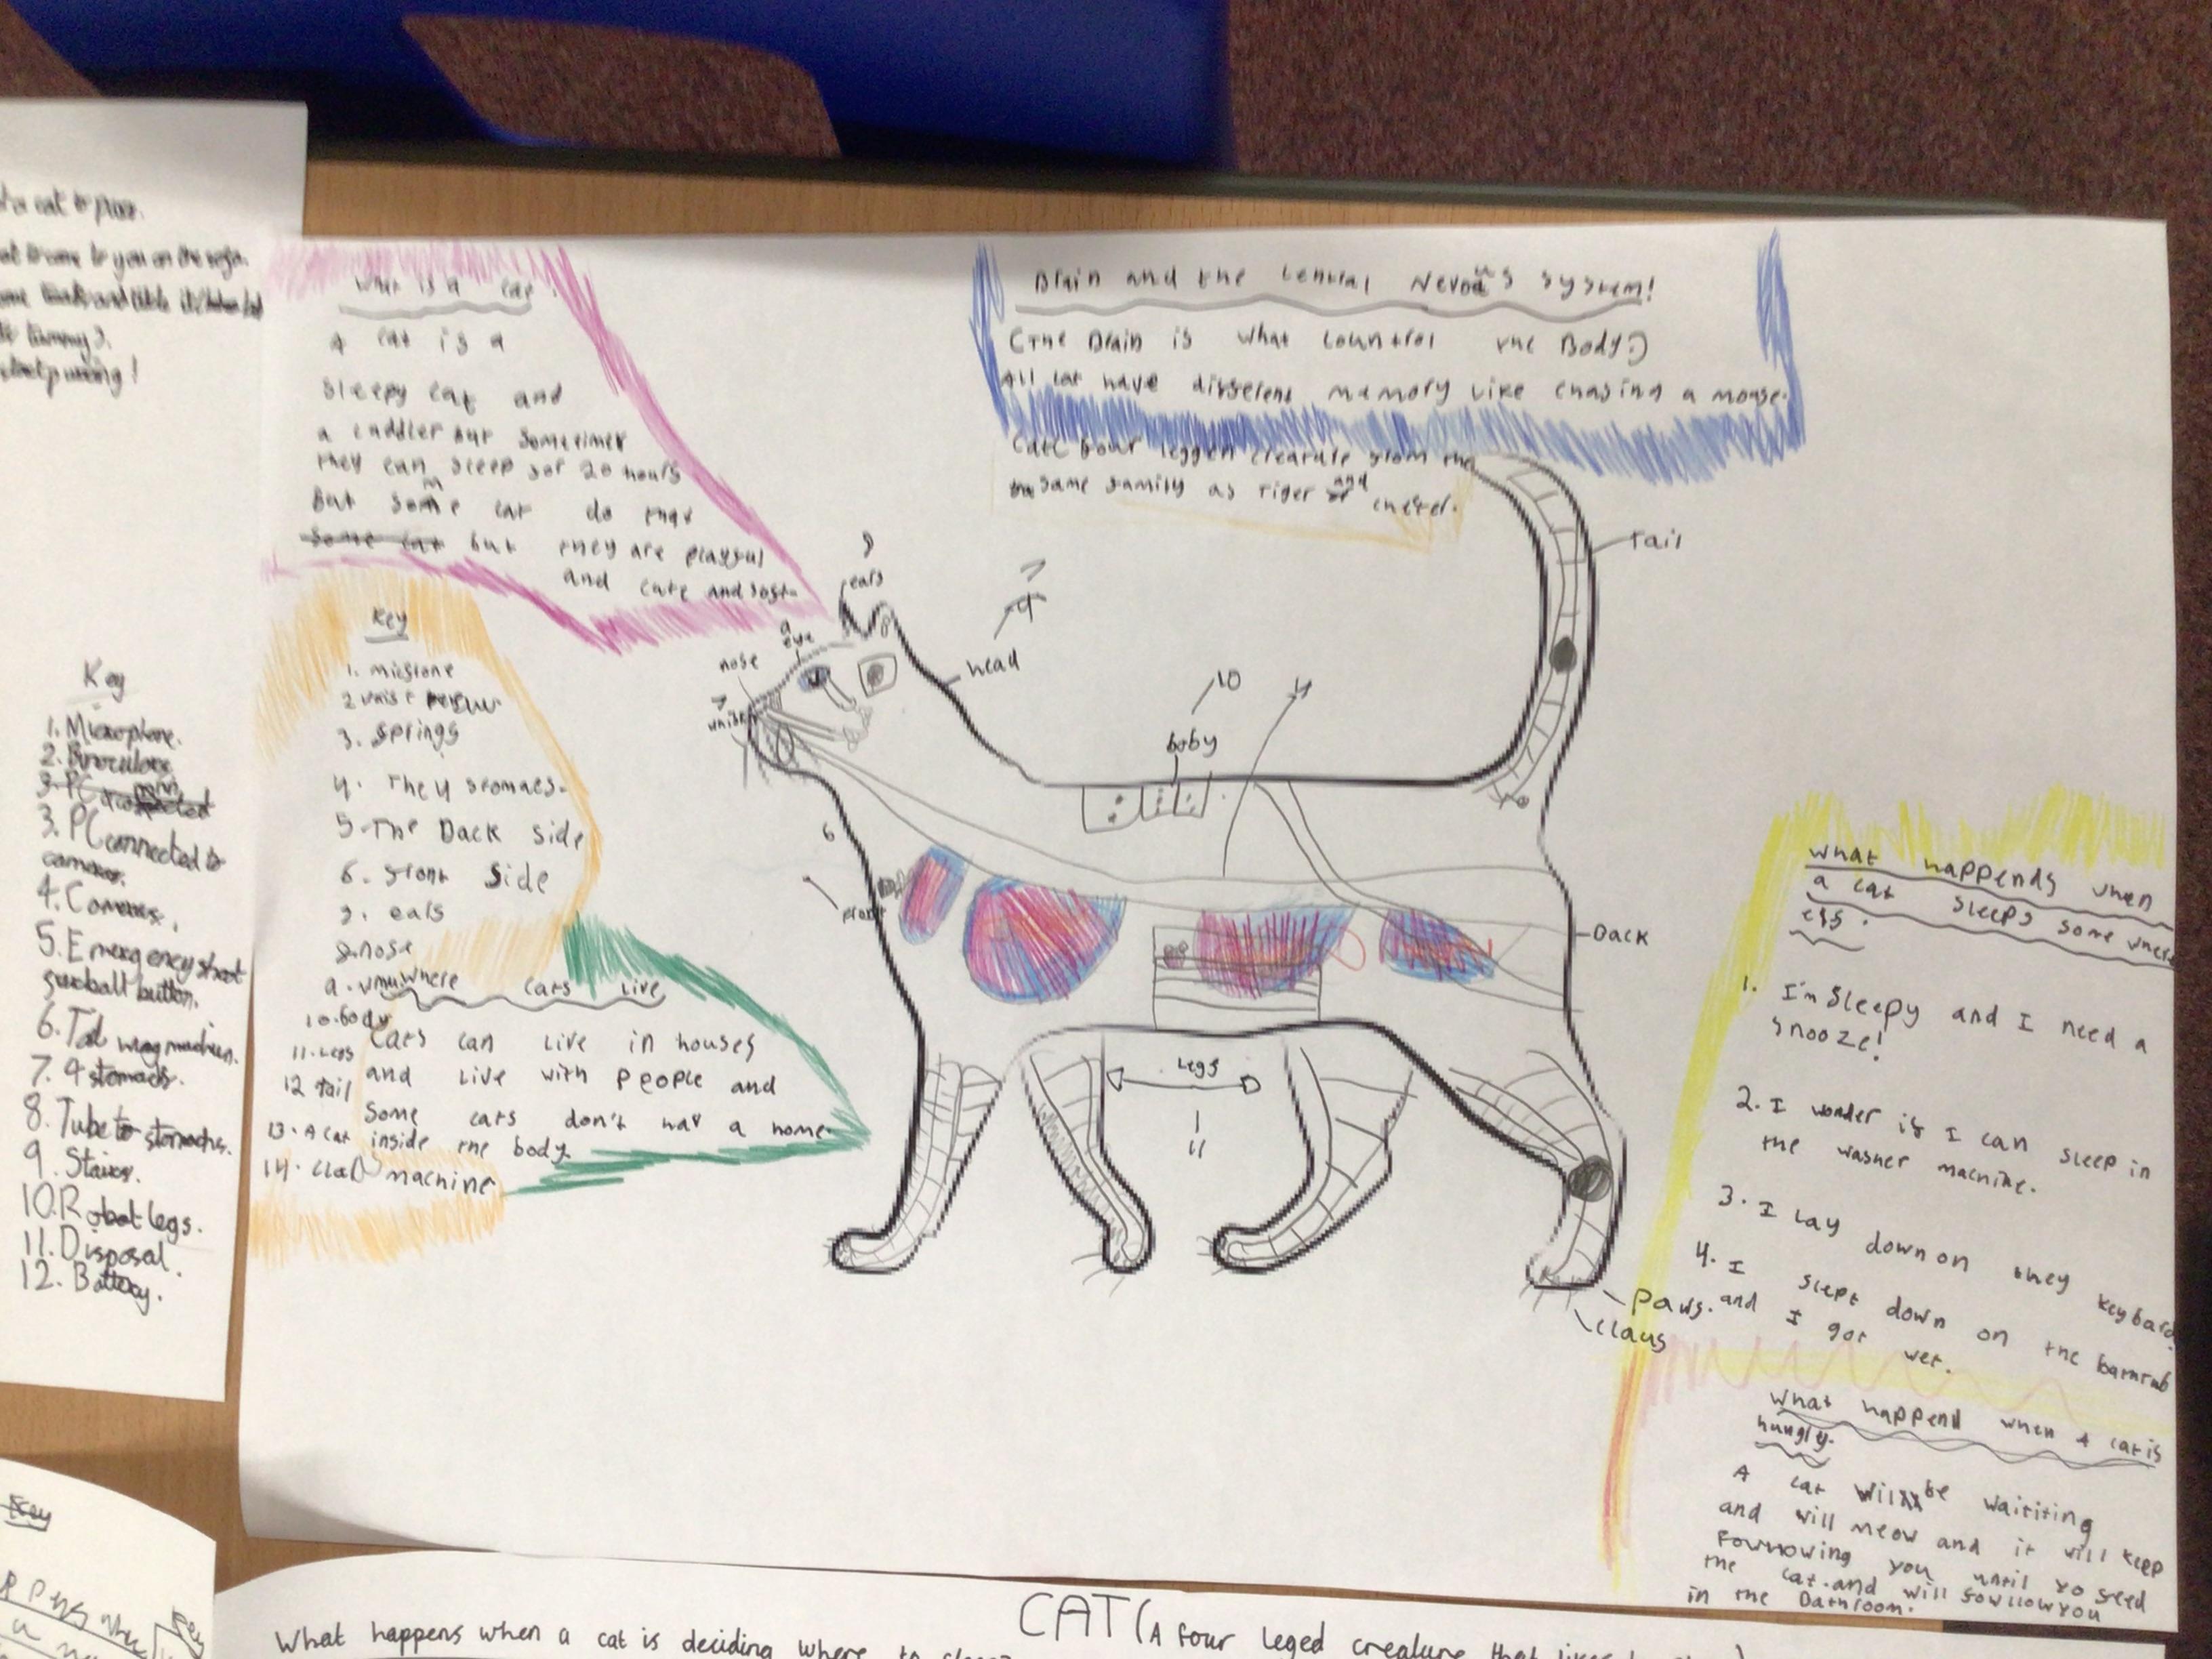 cat to purr.
to come to you on the sofa.
tummy).
start purring!
Key
1. Microphone.
2. Binoculars
3. PC
3. PC connected to
cameras.
4. Cameras.
5. Emergency shoot
furball button.
6. Tail wag machien.
7. 4 stomachs.
8. Tube to stomachs.
9. Stairs.
10. Robot legs.
11. Disposal.
12. Battery.
Key
What is a cat
A cat is a
sleepy cat and
a cuddler but sometimes
they can sleep for 20 hours
But some cat do that
some cat but they are playful
and cute and soft.
Key
1. micfone
3. springs
4. The 4 stomacs.
5 The Back side
6. front side
7. ears
8 nose
10. body
11. Legs
12 tail
13. A cat
14. machine
where cats live
Cats can live in houses
and live with people and
some cats don't hav a home.
inside the body.
Brain and the central Nevous system!
(The Brain is what countrol the Body:)
All cat have different memory like chasing a mouse.
Cat four leggen creature from the
the same family as tiger and cheter.
ears
9
eye
nose
7
head
7
tail
10
boby
4
6
front
Back
legs
11
Paws.
claws
What happends when
a cat sleeps some where
els.
1. I'm sleepy and I need a
snooze!
2. I wonder if I can sleep in
the washer machine.
3. I lay down on they keybard
4. I slept down on the bathtub
and I got wet.
What happend when A cat is
hungry.
A cat will be waititing
and will meow and it will keep
fowllowing you until yo feed
the cat. and will fowllow you
in the Bathroom.
CAT (A four leged creature that likes to
What happens when a cat is deciding where to sleep?